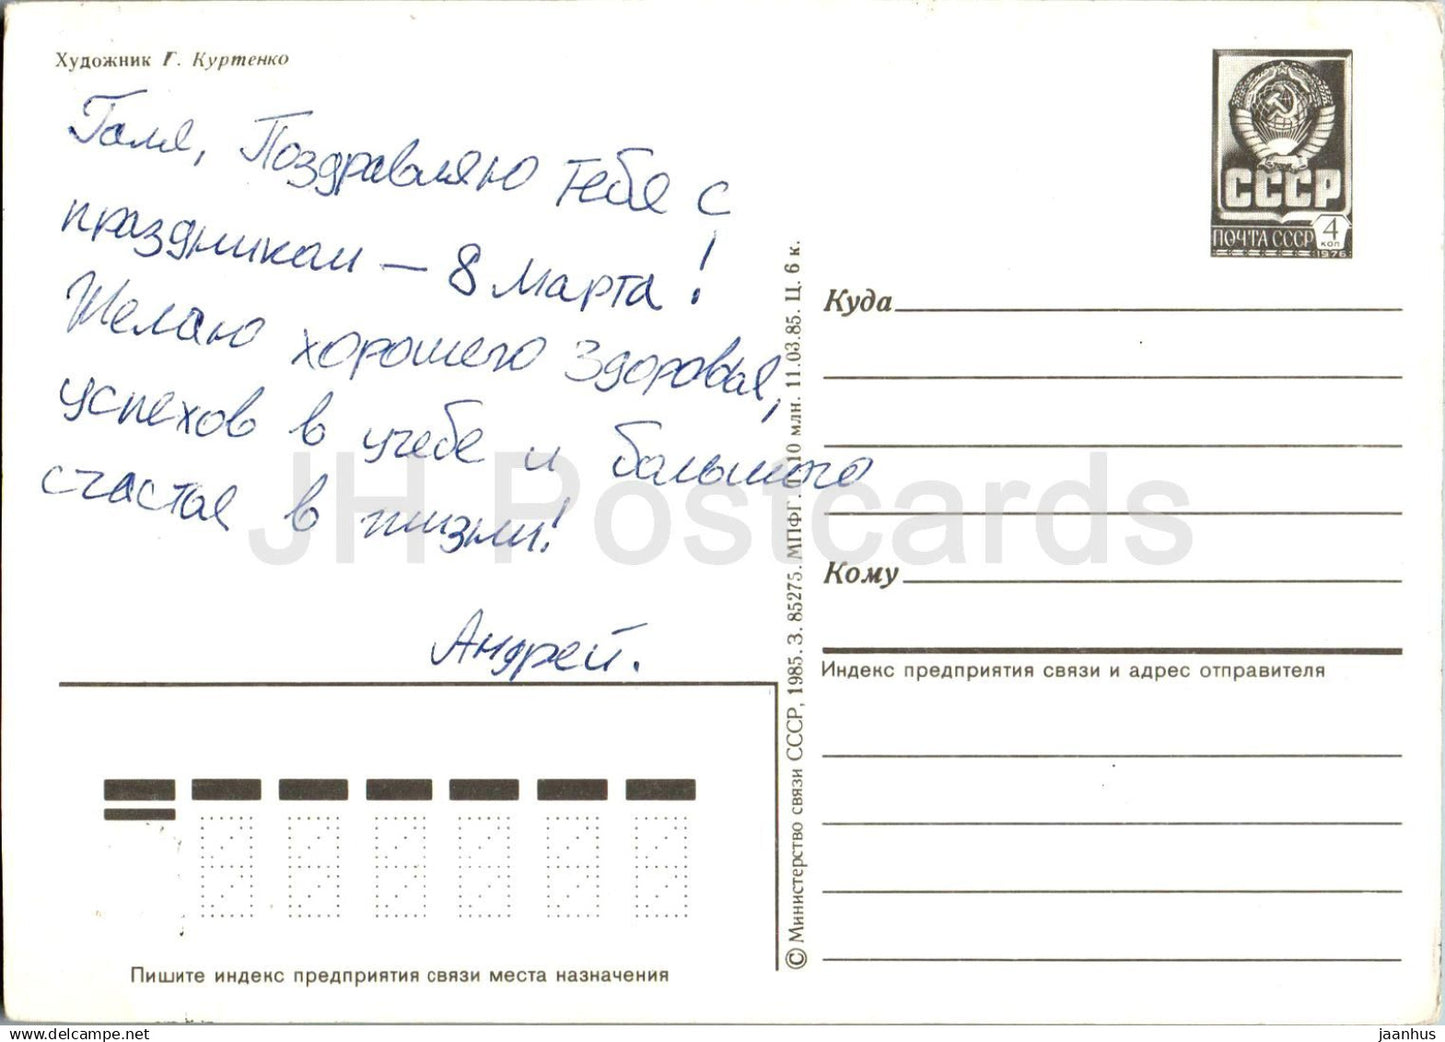 Художник Г. Куртенко
Галя, Поздравляю тебя с
праздником – 8 марта!
Желаю хорошего здоровья,
успехов в учебе и большого
счастья в жизни!
Андрей.
Пишите индекс предприятия связи места назначения
© Министерство связи СССР, 1985. З. 85275. МПФГ. П. 10 млн. 11.03.85. Ц. 6 к.
СССР
ПОЧТА СССР 4 коп
1976
Куда
Кому
Индекс предприятия связи и адрес отправителя
JH Postcards
jaanhus